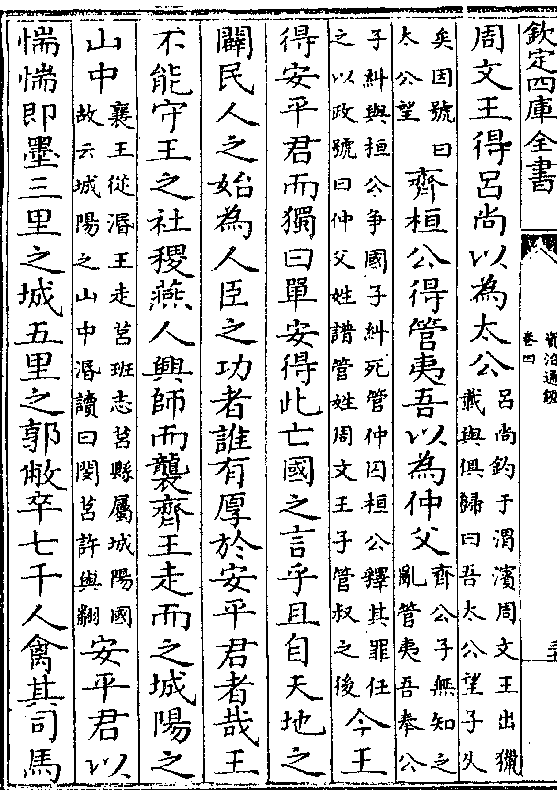 欽定四庫全書
資治通鑑
卷四
周文王得呂尚以為太公呂尚釣于渭濱周文王出獵載與俱歸曰吾太公望子久
矣因號曰太公望齊桓公得管夷吾以為仲父齊公子無知之亂管夷吾奉公
子糾與桓公爭國子糾死管仲囚桓公釋其罪任之以政號曰仲父姓譜管姓周文王子管叔之後今王
得安平君而獨曰單安得此亡國之言乎且自天地之
闢民人之始為人臣之功者誰有厚於安平君者哉王
不能守王之社稷燕人興師而襲齊王走而之城陽之
山中襄王從湣王走莒班志莒縣屬城陽國故云城陽之山中湣讀曰閔莒許與翻安平君以
惴惴即墨三里之城五里之郭敝卒七千人禽其司馬